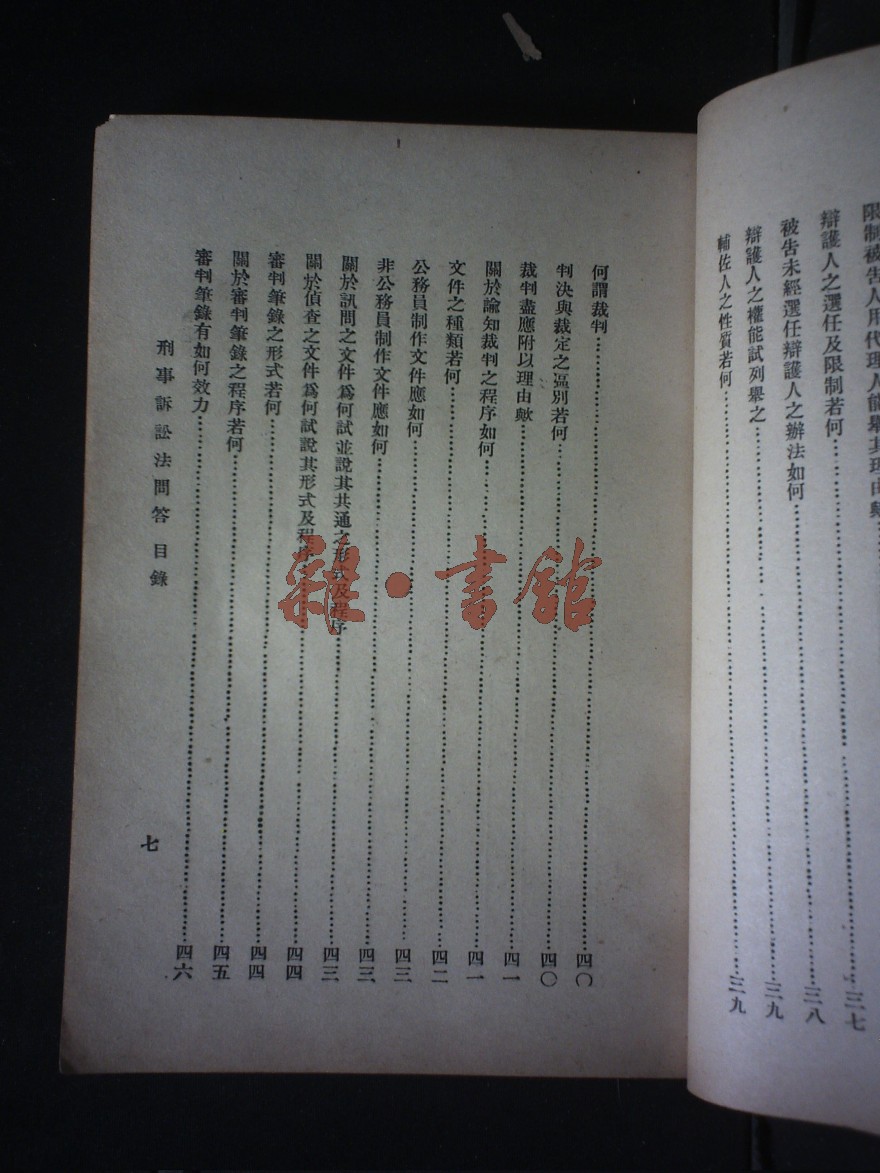 限制被告人用代理人能舉其理由歟
三七
辯護人之選任及限制若何……三八
被告未經選任辯護人之辦法如何……三九
辯護人之權能試列舉之……三九
輔佐人之性質若何
何謂裁判……四〇
判決與裁定之區別若何……四〇
裁判盡應附以理由歟……四一
關於諭知裁判之程序如何……四一
文件之種類若何……四二
公務員制作文件應如何……四三
非公務員制作文件應如何……四三
關於訊問之文件爲何試並說其共通之形式及程序……四三
關於偵查之文件爲何試說其形式及程序……四四
審判筆錄之形式若何……四四
關於審判筆錄之程序若何……四五
審判筆錄有如何效力……四六
刑事訴訟法問答 目錄
七
雜·書館